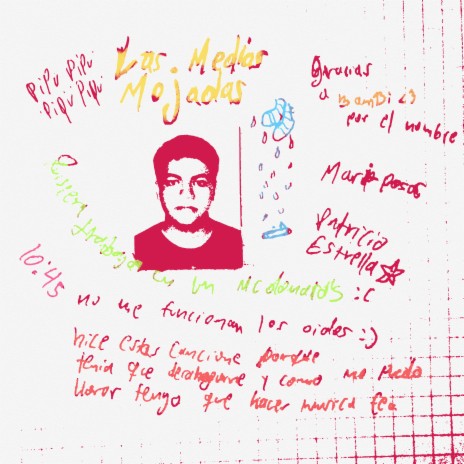 PiPu PiPu
PiPu PiPu
Las Medias
Mojadas
Gracias
a BamBi <3
por el nombre
Mariposas
Patricio
Estrella
trabajar en un mcdonald's :c
10:45
no me funcionan los oidos :)
hice estas cancione porque
tenia que desahogarme y como no puedo
llorar tengo que hacer musica fea